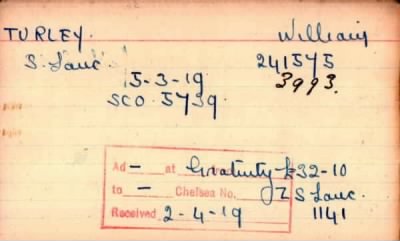 TURLEY. William
S. Lanc. 241575
15-3-19 3993.
SCO 5739.
Ad - at Gratuity £32-10
to - Chelsea No. S Lanc.
Received 2-4-19 1141